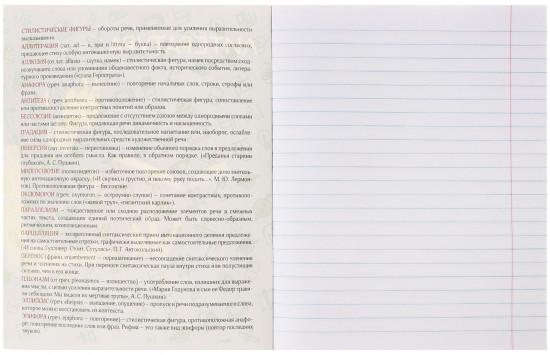 СТИЛИСТИЧЕСКИЕ ФИГУРЫ – обороты речи, применяемые для усиления выразительности
высказывания.
АЛЛИТЕРАЦИЯ (лат. ad – к, при и littera – буква) – повторение однородных согласных,
придающее стиху особую интонационную выразительность.
АЛЛЮЗИЯ (от лат. allusio – шутка, намек) – стилистическая фигура, намек посредством сход-
нозвучащего слова или упоминания общеизвестного факта, исторического события, литера-
турного произведения («слава Герострата»).
АНАФОРА (греч. anaphora – вынесение) – повторение начальных слов, строки, строфы или
фразы.
АНТИТЕЗА (греч. antithesis – противоположение) – стилистическая фигура, сопоставление
или противопоставление контрастных понятий или образов.
БЕССОЮЗИЕ (асиндетон) – предложения с отсутствием союзов между однородными словами
или частями целого. Фигура, придающая речи динамичность и насыщенность.
ГРАДАЦИЯ – стилистическая фигура, последовательное нагнетание или, наоборот, ослабле-
ние силы однородных выразительных средств художественной речи.
ИНВЕРСИЯ (лат. inversio – перестановка) – изменение обычного порядка слов в предложении
для придания им особого смысла. Как правило, в обратном порядке. («Преданья старины
глубокой», А. С. Пушкин).
МНОГОСОЮЗИЕ (полисиндетон) – избыточное повторение союзов, создающее дополнитель-
ную интонационную окраску. («И скучно, и грустно, и некому руку подать...», М. Ю. Лермон-
тов). Противоположная фигура – бессоюзие.
ОКСЮМОРОН (греч. oxymoron – остроумно-глупое) – сочетание контрастных, противополож-
ных по значению слов («живой труп», «гигантский карлик»).
ПАРАЛЛЕЛИЗМ – тождественное или сходное расположение элементов речи в смежных
частях текста, создающих единый поэтический образ. Может быть словесно-образным,
ритмическим, композиционным.
ПАРЦЕЛЛЯЦИЯ – экспрессивный синтаксический прием интонационного деления предложе-
ния на самостоятельные отрезки, графически выделенные как самостоятельные предложения.
(«И снова. Гулливер. Стоит. Сутулясь», П. Г. Антокольский).
ПЕРЕНОС (франц. enjambement – перешагивание) – несовпадение синтаксического членения
речи и членения на стихи. При переносе синтаксическая пауза внутри стиха или полустишия
сильнее, чем в его конце.
ПЛЕОНАЗМ (от греч. pleonasmos – излишество) – употребление слов, излишних для выраже-
ния мысли, с целью усиления выразительности речи. («Мария Годунова и сын ее Федор трави-
ли себя ядом. Мы видели их мертвые трупы», А. С. Пушкин).
ЭЛЛИПСИС (греч. elleipsis – выпадение, опущение) – пропуск в речи подразумеваемого слова,
которое можно восстановить из контекста.
ЭПИФОРА (греч. epiphora – повторение) – стилистическая фигура, противоположная анафо-
ре; повторение последних слов или фраз. Рифма – это также вид эпифоры (повтор последних
звуков).